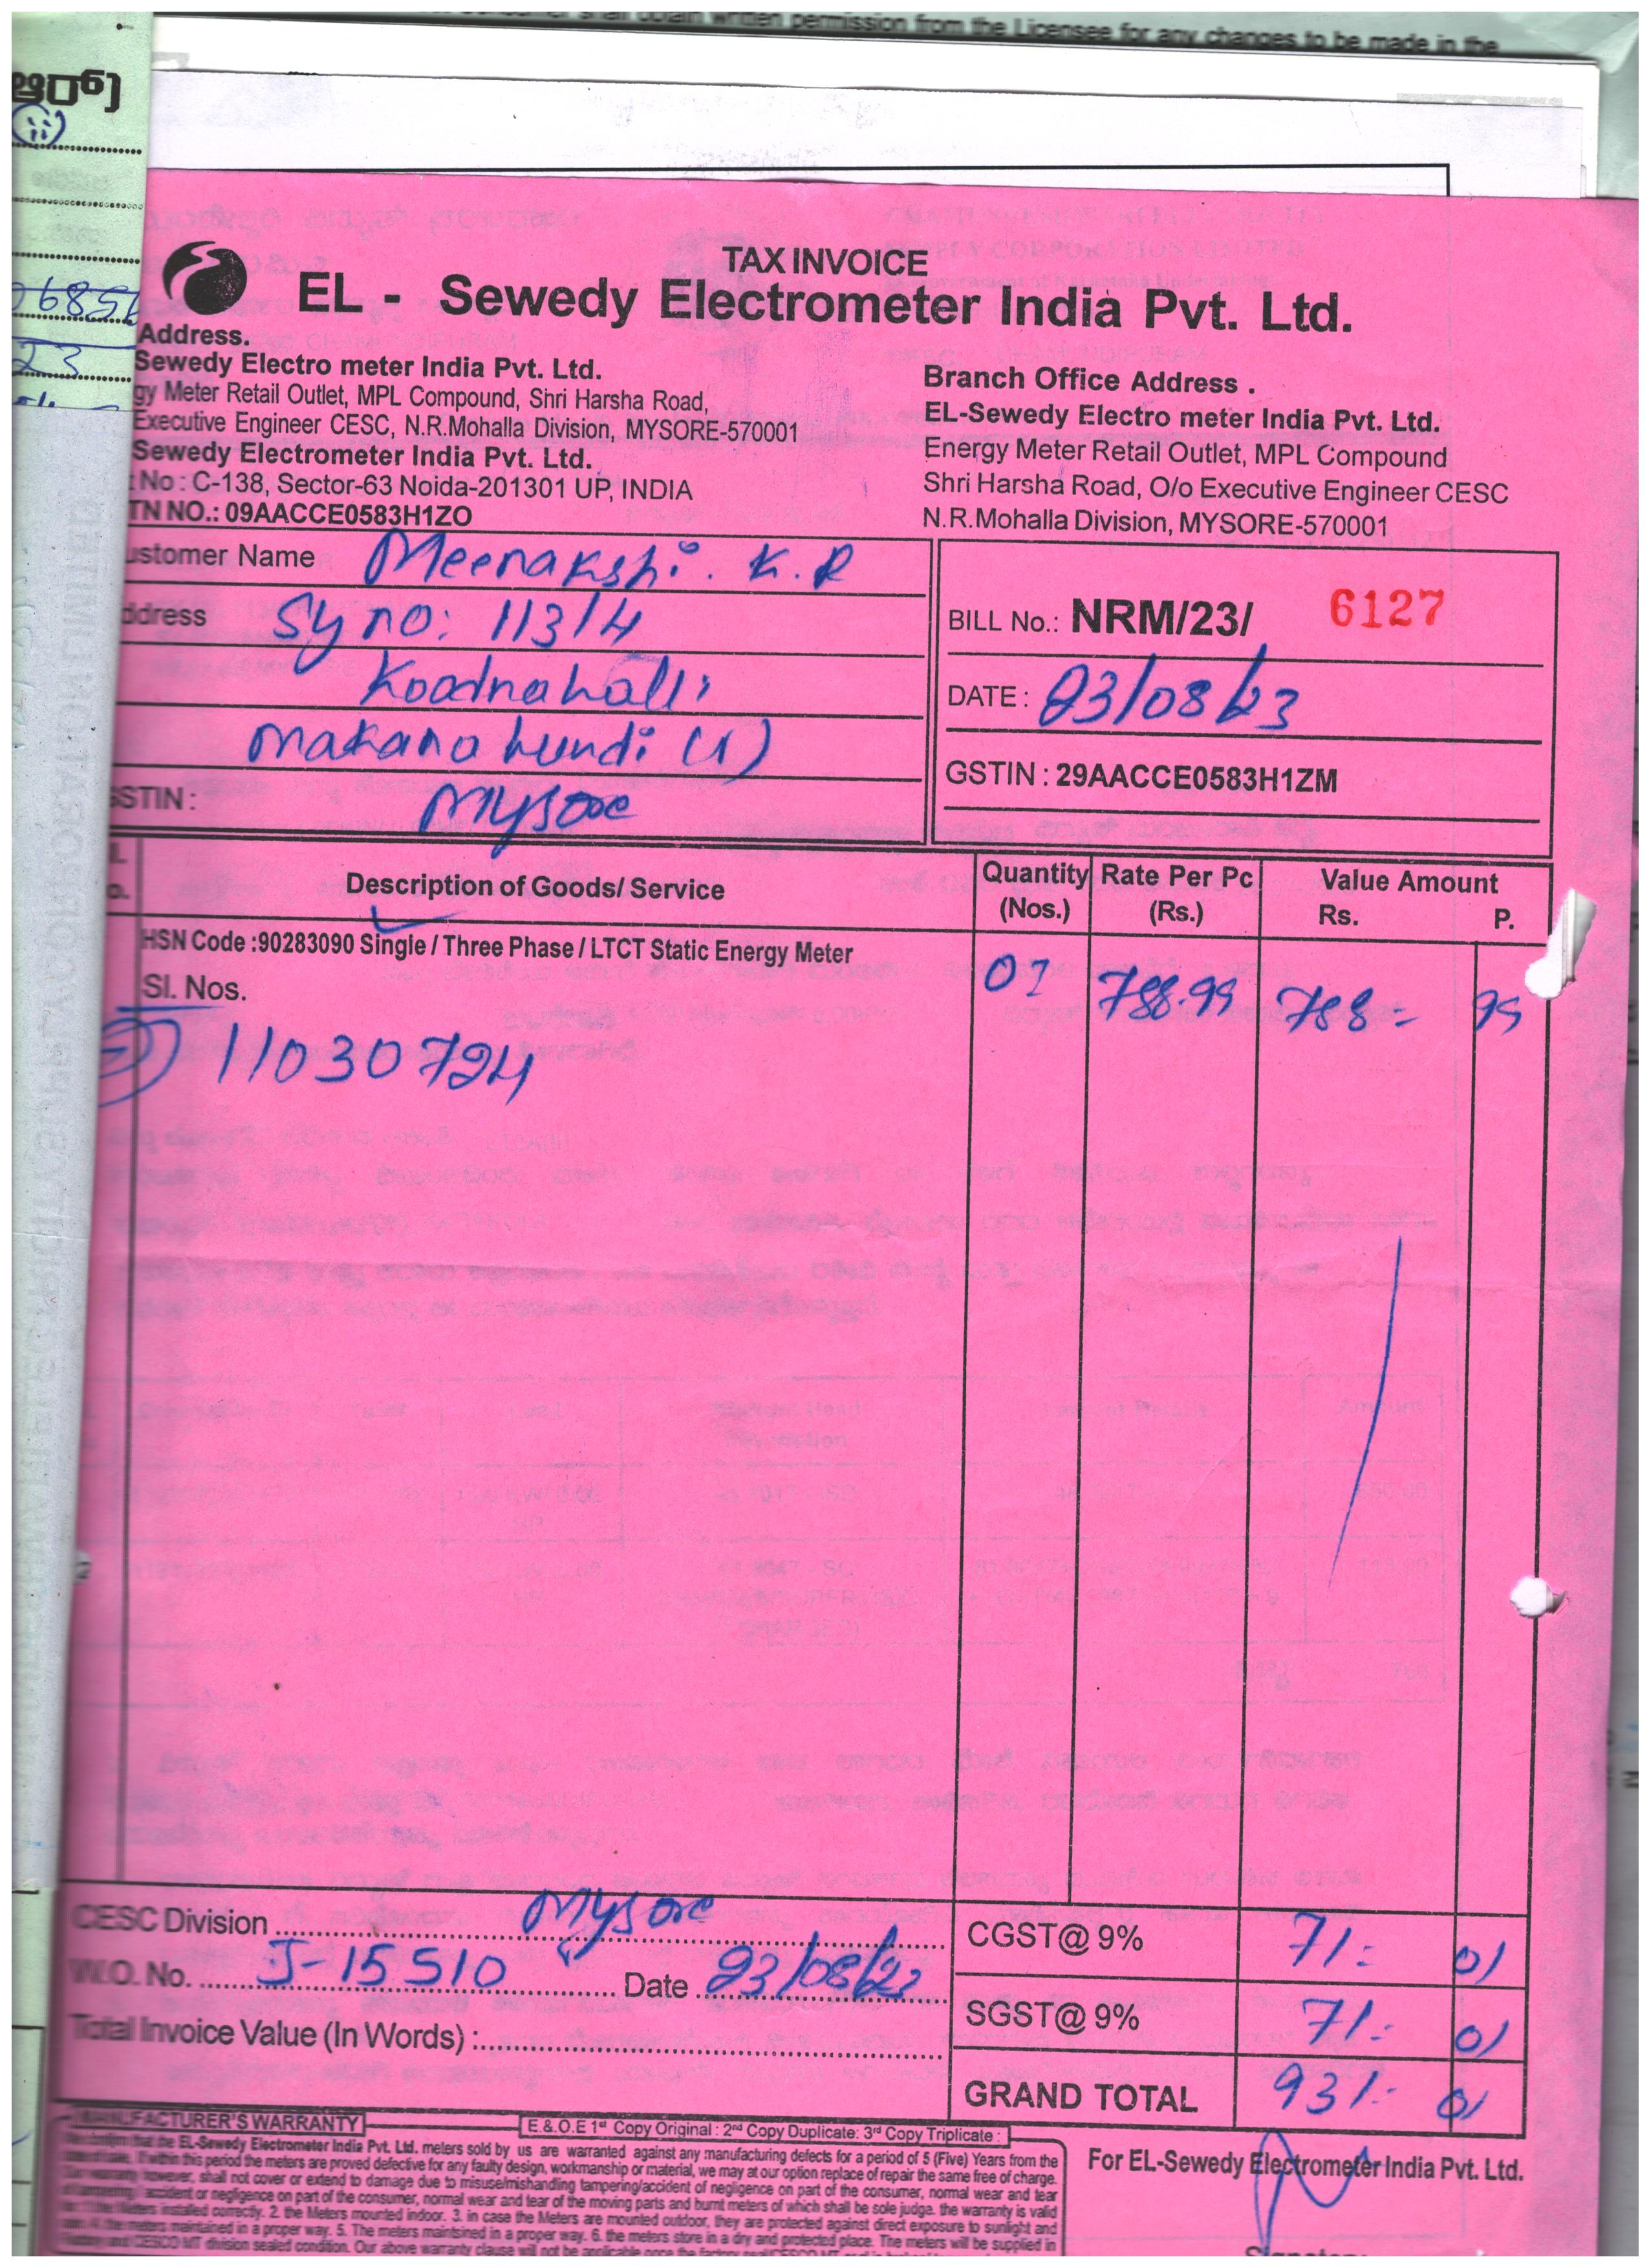 Consumer shall obtain written permission from the Licensee for any changes to be made in the
ಆರ್)
(ii)
23
TAX INVOICE
EL - Sewedy Electrometer India Pvt. Ltd.
Address.
Sewedy Electro meter India Pvt. Ltd.
gy Meter Retail Outlet, MPL Compound, Shri Harsha Road,
Executive Engineer CESC, N.R.Mohalla Division, MYSORE-570001
Sewedy Electrometer India Pvt. Ltd.
No : C-138, Sector-63 Noida-201301 UP, INDIA
TN NO.: 09AACCE0583H1ZO
Branch Office Address .
EL-Sewedy Electro meter India Pvt. Ltd.
Energy Meter Retail Outlet, MPL Compound
Shri Harsha Road, O/o Executive Engineer CESC
N.R.Mohalla Division, MYSORE-570001
ustomer Name Meenakshi. K. R
ddress Sy no: 113/4
Koodnahalli
Makana hundi (1)
GSTIN : Mysore
BILL No.: NRM/23/ 6127
DATE : 23/08/23
GSTIN : 29AACCE0583H1ZM
Description of Goods/ Service Quantity (Nos.) Rate Per Pc (Rs.) Value Amount Rs. P.
HSN Code :90283090 Single / Three Phase / LTCT Static Energy Meter 01 788.99 788= 99
Sl. Nos.
11030724
CESC Division Mysore
W.O. No. J-15510 Date 23/08/23
Total Invoice Value (In Words) :
CGST@ 9% 71= 01
SGST@ 9% 71= 01
GRAND TOTAL 931= 01
MANUFACTURER'S WARRANTY
E.& O.E 1st Copy Original : 2nd Copy Duplicate: 3rd Copy Triplicate :
that the EL-Sewedy Electrometer India Pvt. Ltd. meters sold by us are warranted against any manufacturing defects for a period of 5 (Five) Years from the
If within this period the meters are proved defective for any faulty design, workmanship or material, we may at our option replace of repair the same free of charge.
however, shall not cover or extend to damage due to misuse/mishandling tampering/accident of negligence on part of the consumer, normal wear and tear
accident or negligence on part of the consumer, normal wear and tear of the moving parts and burnt meters of which shall be sole judge. the warranty is valid
Meters installed correctly. 2. the Meters mounted indoor. 3. in case the Meters are mounted outdoor, they are protected against direct exposure to sunlight and
4. the meters maintained in a proper way. 5. The meters maintsined in a proper way. 6. the meters store in a dry and protected place. The meters will be supplied in
MT division sealed condition. Our above warranty clause will not be applicable once the factory
For EL-Sewedy Electrometer India Pvt. Ltd.